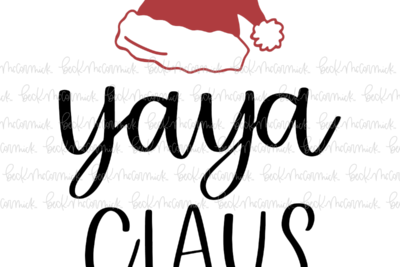 yaya
CLAUS